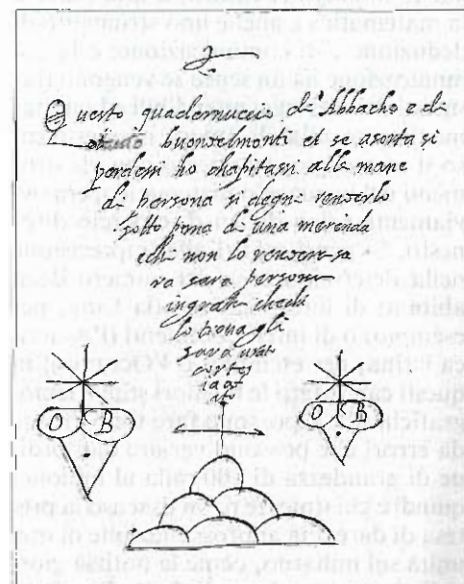 Questo quadernuccio d'Abbacho e di
buonselmonti et se asorta si
perdessi ho chapitassi alle mane
di persona si degni renderlo
sotto pena di una merenda
e chi non lo rendera sa
ra sara persona
ingrata et chi
lo trova gli
sara usat
cortes
ia gr
at
O B
O B